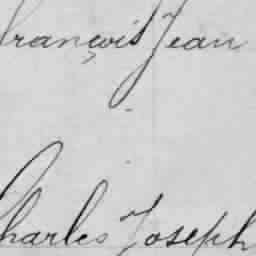 François Jean
Charles Joseph